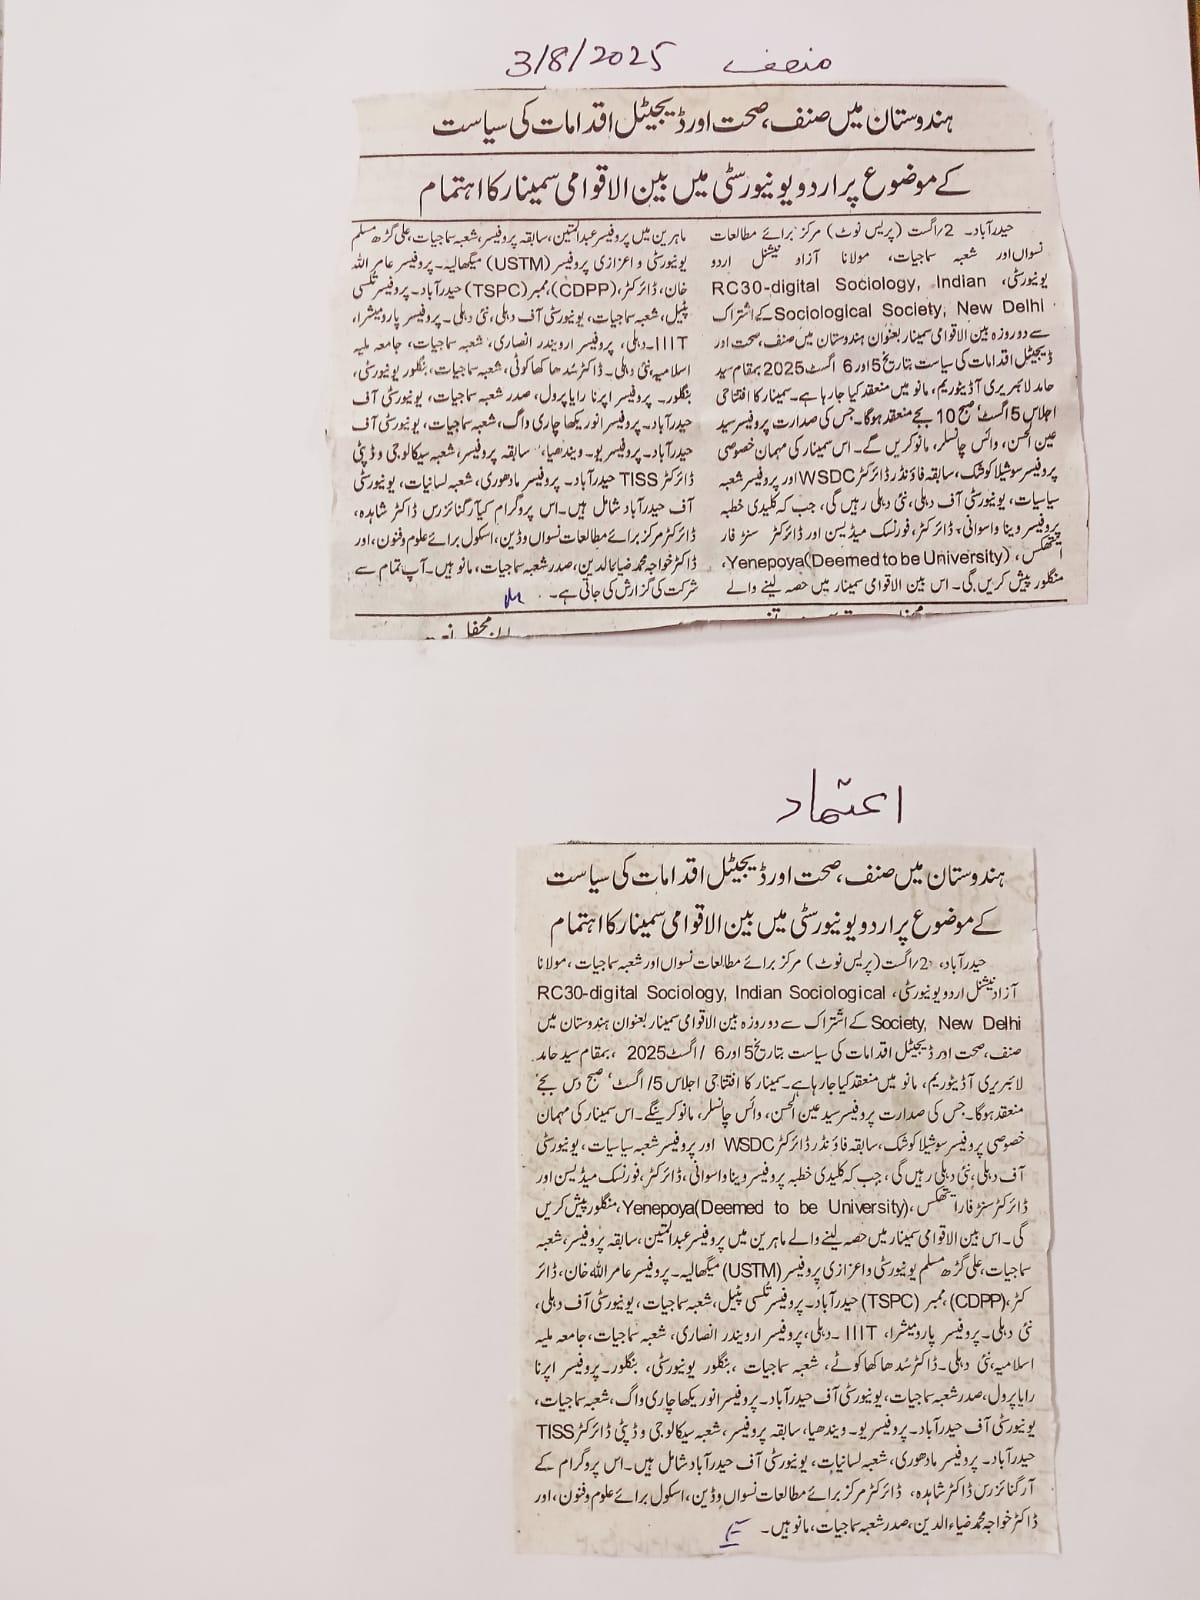 منصف 3/8/2025
ہندوستان میں صنف، صحت اور ڈیجیٹل اقدامات کی سیاست
کے موضوع پر اردو یونیورسٹی میں بین الاقوامی سمینار کا اہتمام
حیدرآباد۔ 2/اگست (پریس نوٹ) مرکز برائے مطالعات
نسواں اور شعبہ سماجیات، مولانا آزاد نیشنل اردو
یونیورسٹی، RC30-digital Sociology, Indian
Sociological Society, New Delhi کے اشتراک
سے دو روزہ بین الاقوامی سمینار بعنوان ہندوستان میں صنف، صحت اور
ڈیجیٹل اقدامات کی سیاست بتاریخ 5 اور 6 اگست 2025 بمقام سید
حامد لائبریری آڈیٹوریم، مانو میں منعقد کیا جارہا ہے۔ سمینار کا افتتاحی
اجلاس 5 اگست صبح 10 بجے منعقد ہوگا۔ جس کی صدارت پروفیسر سید
عین الحسن، وائس چانسلر، مانو کریں گے۔ اس سمینار کی مہمان خصوصی
پروفیسر سوشیلا کوشک، سابقہ فاؤنڈر ڈائرکٹر WSDC اور پروفیسر شعبہ
سیاسیات، یونیورسٹی آف دہلی، نئی دہلی رہیں گی، جب کہ کلیدی خطبہ
پروفیسر وینا واسوانی، ڈائرکٹر، فورنسک میڈیسن اور ڈائرکٹر سنٹر فار
ایتھکس، Yenepoya(Deemed to be University)،
منگلور پیش کریں گی۔ اس بین الاقوامی سمینار میں حصہ لینے والے
ماہرین میں پروفیسر عبدالمتین، سابقہ پروفیسر، شعبہ سماجیات، علی گڑھ مسلم
یونیورسٹی و اعزازی پروفیسر (USTM) میگھالیہ۔ پروفیسر عامر اللہ
خان، ڈائرکٹر، (CDPP)، ممبر (TSPC) حیدرآباد۔ پروفیسر تلسی
پٹیل، شعبہ سماجیات، یونیورسٹی آف دہلی، نئی دہلی۔ پروفیسر پارومیشرا،
IIIT۔ دہلی، پروفیسر اروندر انصاری، شعبہ سماجیات، جامعہ ملیہ
اسلامیہ، نئی دہلی۔ ڈاکٹر سُدھا کھاکوٹی، شعبہ سماجیات، بنگلور یونیورسٹی،
بنگلور۔ پروفیسر اپرنا رایاپرول، صدر شعبہ سماجیات، یونیورسٹی آف
حیدرآباد۔ پروفیسر انوریکھا چاری واگ، شعبہ سماجیات، یونیورسٹی آف
حیدرآباد۔ پروفیسر یو۔ ویندھیا، سابقہ پروفیسر، شعبہ سیکالوجی و ڈپٹی
ڈائرکٹر TISS حیدرآباد۔ پروفیسر مادھوری، شعبہ لسانیات، یونیورسٹی
آف حیدرآباد شامل ہیں۔ اس پروگرام کے آرگنائزرس ڈاکٹر شاہدہ،
ڈائرکٹر مرکز برائے مطالعات نسواں و ڈین، اسکول برائے علوم و فنون، اور
ڈاکٹر خواجہ محمد ضیاء الدین، صدر شعبہ سماجیات، مانو ہیں۔ آپ تمام سے
شرکت کی گزارش کی جاتی ہے۔
اعتماد
ہندوستان میں صنف، صحت اور ڈیجیٹل اقدامات کی سیاست
کے موضوع پر اردو یونیورسٹی میں بین الاقوامی سمینار کا اہتمام
حیدرآباد، 2/اگست (پریس نوٹ) مرکز برائے مطالعات نسواں اور شعبہ سماجیات، مولانا
آزاد نیشنل اردو یونیورسٹی، RC30-digital Sociology, Indian Sociological
Society, New Delhi کے اشتراک سے دو روزہ بین الاقوامی سمینار بعنوان ہندوستان میں
صنف، صحت اور ڈیجیٹل اقدامات کی سیاست بتاریخ 5 اور 6 /اگست 2025 ، بمقام سید حامد
لائبریری آڈیٹوریم، مانو میں منعقد کیا جارہا ہے۔ سمینار کا افتتاحی اجلاس 5/اگست ' صبح دس بجے
منعقد ہوگا۔ جس کی صدارت پروفیسر سید عین الحسن، وائس چانسلر، مانو کرینگے۔ اس سمینار کی مہمان
خصوصی پروفیسر سوشیلا کوشک، سابقہ فاؤنڈر ڈائرکٹر WSDC اور پروفیسر شعبہ سیاسیات، یونیورسٹی
آف دہلی، نئی دہلی رہیں گی، جب کہ کلیدی خطبہ پروفیسر وینا واسوانی، ڈائرکٹر، فورنسک میڈیسن اور
ڈائرکٹر سنٹر فار ایتھکس، Yenepoya(Deemed to be University)، منگلور پیش کریں
گی۔ اس بین الاقوامی سمینار میں حصہ لینے والے ماہرین میں پروفیسر عبدالمتین، سابقہ پروفیسر، شعبہ
سماجیات، علی گڑھ مسلم یونیورسٹی و اعزازی پروفیسر (USTM) میگھالیہ۔ پروفیسر عامر اللہ خان، ڈائر
کٹر، (CDPP)، ممبر (TSPC) حیدرآباد۔ پروفیسر تلسی پٹیل، شعبہ سماجیات، یونیورسٹی آف دہلی،
نئی دہلی۔ پروفیسر پارومیشرا، IIIT ۔ دہلی، پروفیسر اروندر انصاری، شعبہ سماجیات، جامعہ ملیہ
اسلامیہ، نئی دہلی۔ ڈاکٹر سُدھا کھاکوٹے، شعبہ سماجیات ، بنگلور یونیورسٹی، بنگلور۔ پروفیسر اپرنا
رایاپرول، صدر شعبہ سماجیات، یونیورسٹی آف حیدرآباد۔ پروفیسر انوریکھا چاری واگ، شعبہ سماجیات،
یونیورسٹی آف حیدرآباد۔ پروفیسر یو۔ ویندھیا، سابقہ پروفیسر، شعبہ سیکالوجی و ڈپٹی ڈائرکٹر TISS
حیدرآباد۔ پروفیسر مادھوری، شعبہ لسانیات، یونیورسٹی آف حیدرآباد شامل ہیں۔ اس پروگرام کے
آرگنائزرس ڈاکٹر شاہدہ، ڈائرکٹر مرکز برائے مطالعات نسواں و ڈین، اسکول برائے علوم و فنون، اور
ڈاکٹر خواجہ محمد ضیاء الدین، صدر شعبہ سماجیات، مانو ہیں۔